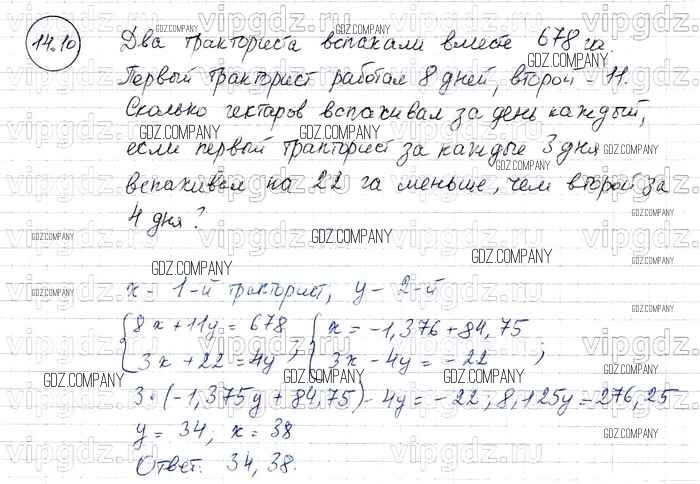 14.10 Два тракториста вспахали вместе 678 га.
Первый тракторист работал 8 дней, второй - 11.
Сколько гектаров вспахивал за день каждый,
если первый тракторист за каждые 3 дня
вспахивал на 22 га меньше, чем второй за
4 дня?
x - 1-й тракторист, y - 2-й
{8x + 11y = 678 {x = -1,376 + 84,75
{3x + 22 = 4y ; {3x - 4y = -22 ;
3·(-1,375y + 84,75) - 4y = -22; 8,125y = 276,25
y = 34; x = 38
Ответ: 34, 38.
GDZ.COMPANY
vipgdz.ru